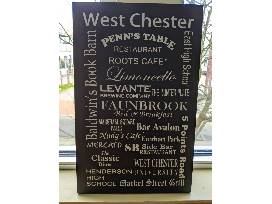 West Chester
PENN'S TABLE
RESTAURANT
ROOTS CAFE
Limoncello
LEVANTE
BREWING COMPANY
FAUNBROOK
Bed & Breakfast
Baldwin's Book Barn
East High School
5 Points Road
Bar Avalon
Everhart Park
MERCATO
SB Side Bar
RESTAURANT
The
Classic
Diner
WEST CHESTER
UNIVERSITY
HENDERSON
HIGH
SCHOOL
Market Street Grill